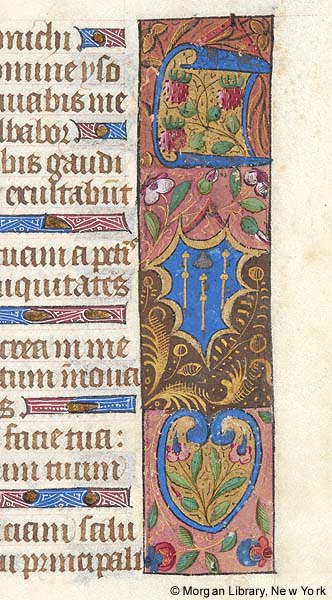 michi
omine yso
uabis me
lbabor
bis gaudi
exultabūt
tuam a pctis̄
iquitates
crea in me
tum īnoua
s
facie tua:
um tuum
ciam salu
u principali
© Morgan Library, New York